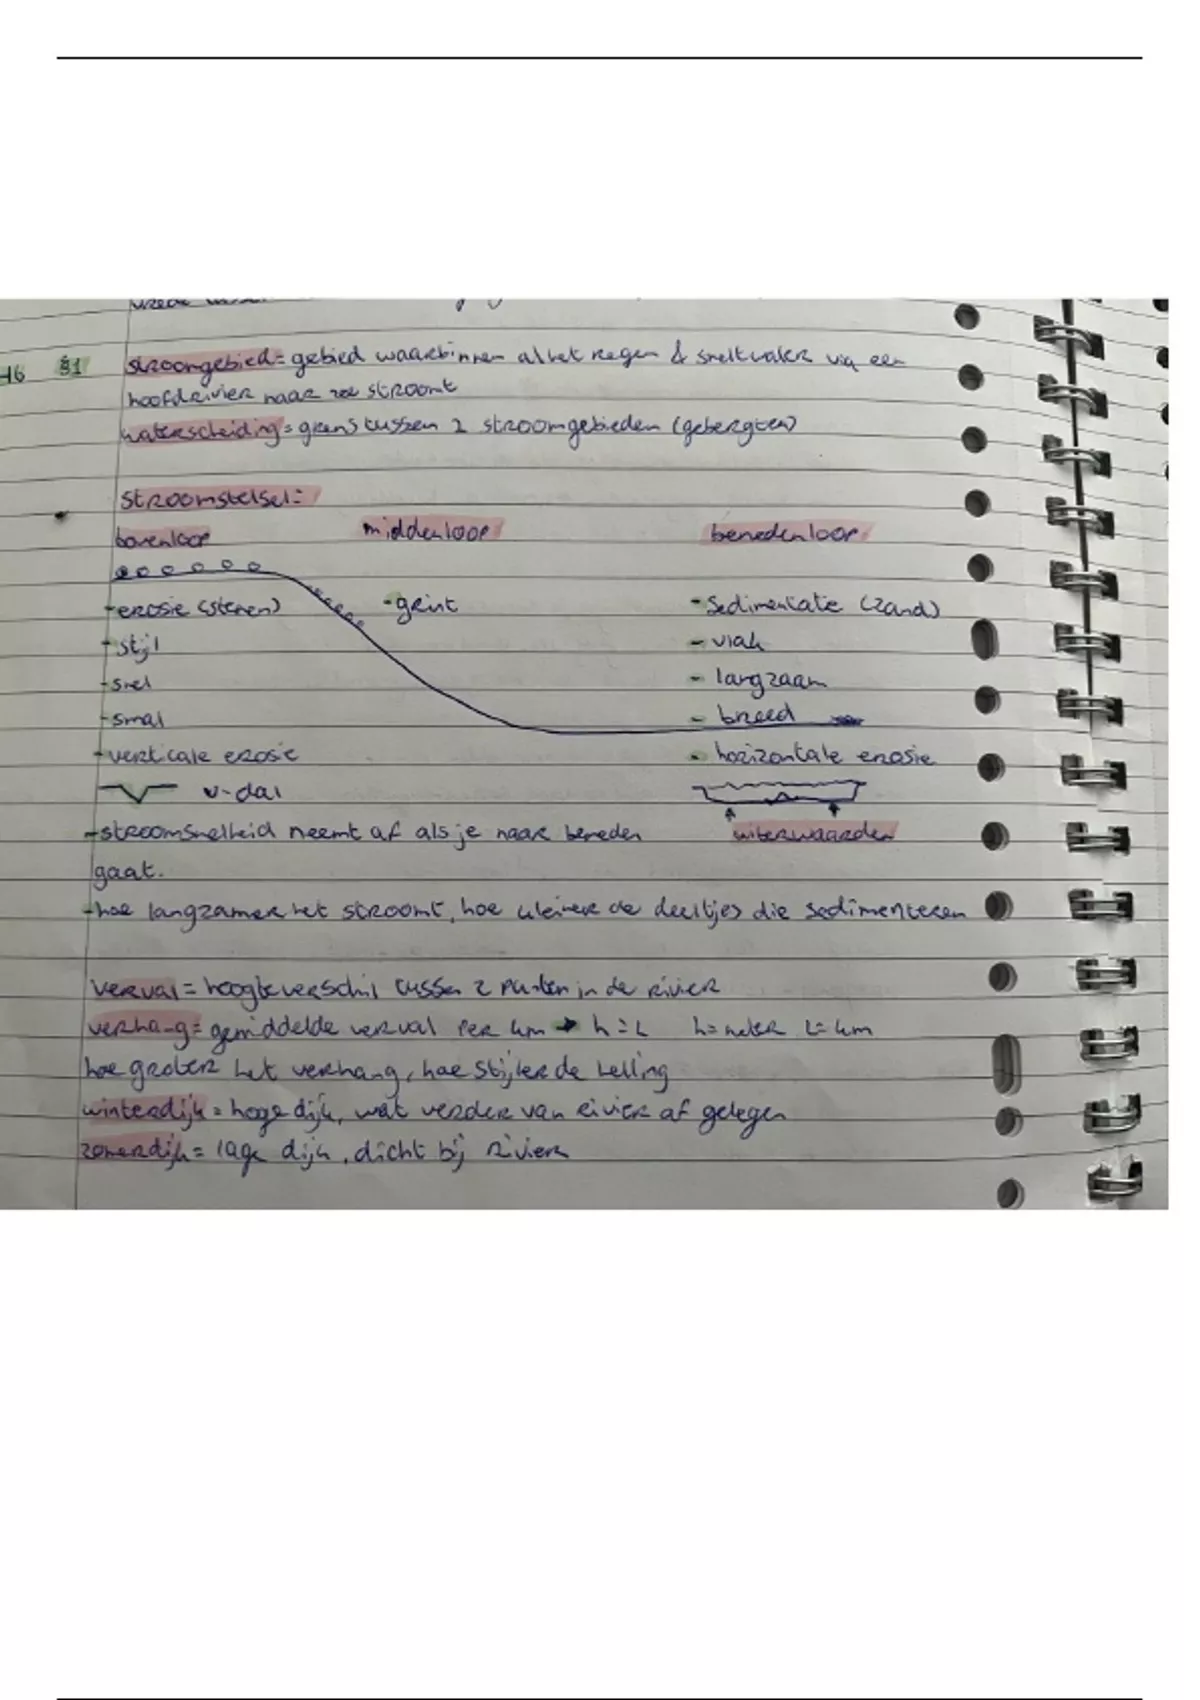 H6 §1 stroomgebied = gebied waarbinnen al het regen & smeltwater via een
hoofdrivier naar zee stroomt
waterscheiding = grens tussen 2 stroomgebieden (gebergten)
stroomstelsel =
bovenloop middenloop benedenloop
- erosie (stenen) - grint - Sedimentatie (zand)
- stijl - vlak
- snel - langzaam
- smal - breed
- verticale erosie - horizontale erosie
v-dal
- stroomsnelheid neemt af als je naar beneden uiterwaarden
gaat.
- hoe langzamer het stroomt, hoe kleiner de deeltjes die sedimenteren
verval = hoogteverschil tussen 2 punten in de rivier
verhang = gemiddelde verval per km → h : L h = meter L = km
hoe groter het verhang, hoe stijler de helling
winterdijk = hoge dijk, wat verder van rivier af gelegen
zomerdijk = lage dijk, dicht bij rivier